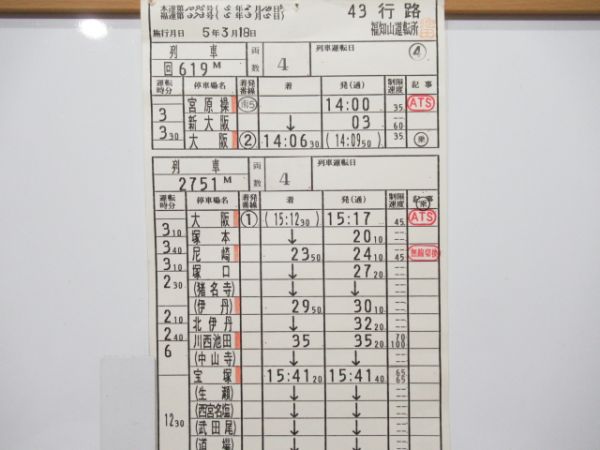 43 行路
福知山運転所
施行月日 5年3月18日
列車 両数 4 列車運転日 ④
回619M
運転時分 停車場名 着発番線 着 発(通) 制限速度 記事
宮原操 14:00 35 ATS
3 新大阪 ↓ 03 60
3 30 大阪 ② 14:06 30 (14:09 50) 35
列車 両数 4 列車運転日
2751M
運転時分 停車場名 着発番線 着 発(通) 制限速度 記事
大阪 ① (15:12 30) 15:17 45 ATS
3 10 塚本 ↓ 20 10
3 40 尼崎 23 50 24 10 45
3 10 塚口 ↓ 27 20
2 30 (猪名寺) ↓ ↓
(伊丹) 29 50 30 10
2 10 北伊丹 ↓ 32 20
2 40 川西池田 35 35 20 70 100
6 (中山寺) ↓ ↓
宝塚 15:41 20 15:41 40 65 65
(生瀬) ↓ ↓
(西宮名塩) ↓ ↓
12 30 (武田尾) ↓ ↓
(道場) ↓ ↓